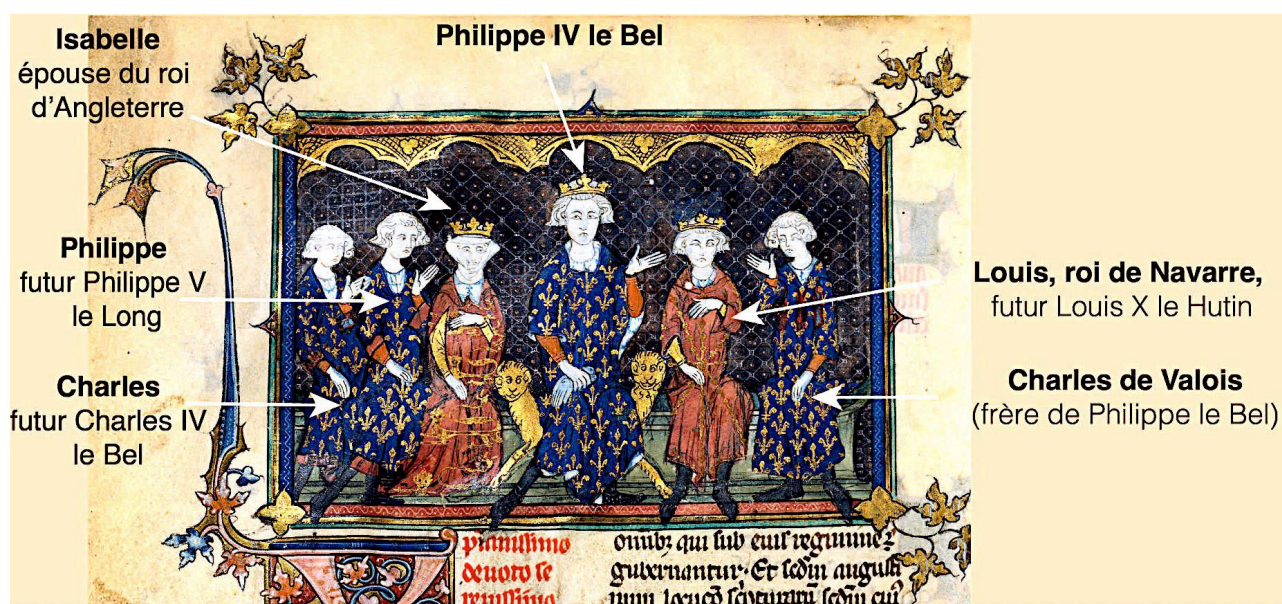 Isabelle
épouse du roi
d'Angleterre
Philippe IV le Bel
Philippe
futur Philippe V
le Long
Charles
futur Charles IV
le Bel
Louis, roi de Navarre,
futur Louis X le Hutin
Charles de Valois
(frère de Philippe le Bel)
deuoto se
gubernantur. Et